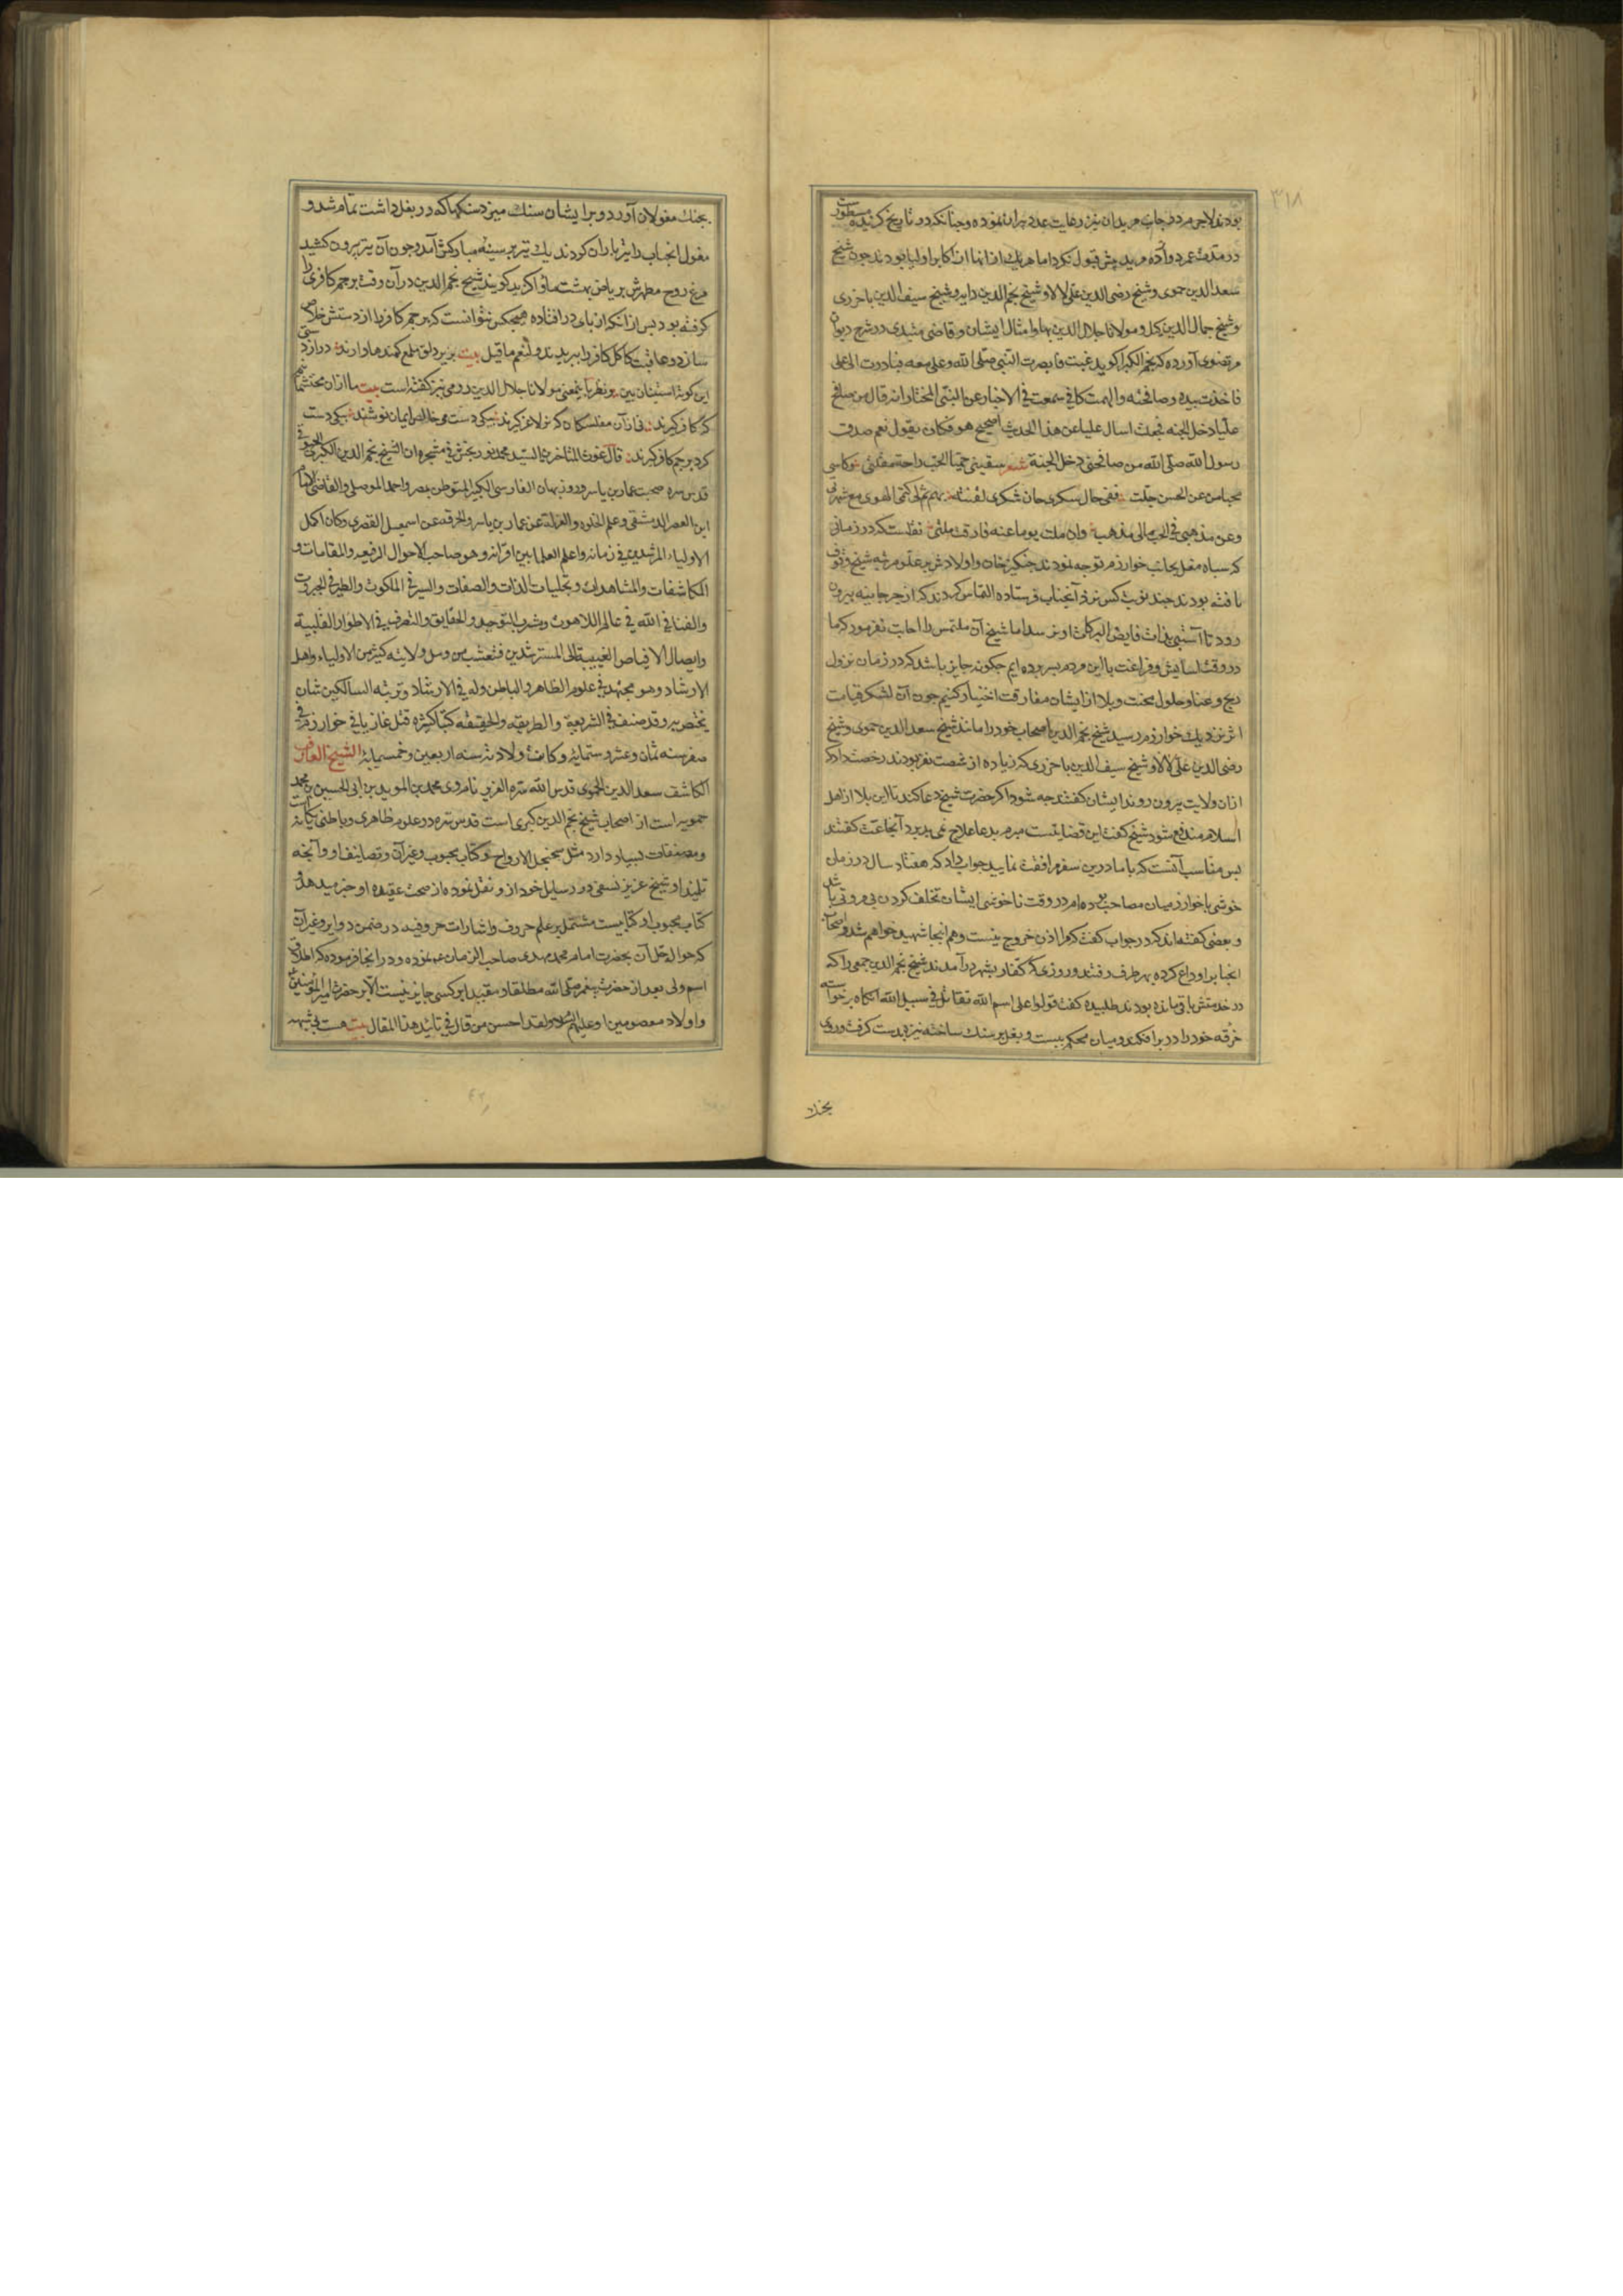 ۳۱۸
بودند لاجرم در جانب مریدان نیز رعایت عدد پیران نموده و چنانکه در تاریخ گزیده مسطور است
در مدت عمر دوازده مرید بیش قبول نکرد اما هر یک از ایشان از اکابر اولیا بودند چون شیخ
سعد الدین حموی و شیخ رضی الدین علی لالا و شیخ نجم الدین دایه و شیخ سیف الدین باخرزی
و شیخ جمال الدین کیل و مولانا جلال الدین بها و امثال ایشان و قاضی میبدی در شرح دیوان
مرتضوی آورده که نجم الکبرا کوید غبت فابصرت النبی صلی الله و علی معه فبادرت الی علی
فاخذت بیده و صافحته و الهمت کانی سمعت فی الاخبار عن النبی المختار انه قال من صافح
علیا دخل الجنه فجعلت اسال علیا عن هذا الحدیث اصحیح هو فکان یقول نعم صدق
رسول الله صلی الله من صافحنی دخل الجنة شعر سقینی حمیا الحب راحة مقلتی وکاسی
محیا من عن الحسن جلت ففی حان سکری حان شکری لفتیة بهم تم لی کتم الهوی مع شهرتی
وعن مذهبی فی الحب مالی مذهب وان ملت یوما عنه فارقت ملتی نقلست که در زمانی
که سپاه مغل بجانب خوارزم توجه نمودند چنکیز خان و اولادش بر علو مرتبه شیخ وقوف
یافته بودند چند نوبت کس نزد آنجناب فرستاده التماس کردند که از جرجانیه بیرون
رود تا آسیبی بذات فایض البرکات او نرسد اما شیخ آن ملتمس را اجابت نفرمود که ما
در وقت آسایش و فراغت با این مردم بسر برده ایم چکونه جایز باشد که در زمان نزول
رنج و عنا و حلول محنت و بلا از ایشان مفارقت اختیار کنیم چون آن لشکر قیامت
اثر نزدیک خوارزم رسید شیخ نجم الدین اصحاب خود را مانند شیخ سعد الدین حموی و شیخ
رضی الدین علی لالا و شیخ سیف الدین باخرزی که زیاده از شصت نفر بودند رخصت داد که
ازان ولایت بیرون روند ایشان کفتند چه شود اکر حضرت شیخ دعا کند تا این بلا از اهل
اسلام مندفع شود شیخ کفت این قضاییست مبرم بدعا علاج نمی پذیرد آنجماعت کفتند
پس مناسب آنست که با ما درین سفر مرافقت نمایید جواب داد که هفتاد سال در زمان
خوشی با خوارزمیان مصاحب بوده ام در وقت ناخوشی ایشان تخلف کردن بی مروتی باشد
و بعضی کفته اند که در جواب کفت که مرا اذن خروج نیست و هم اینجا شهید خواهم شد و اصحاب
انجناب را وداع کرده بهر طرف رفتند و روزی که کفار بشهر درآمدند شیخ نجم الدین جمعی را که
در خدمتش باقی مانده بودند طلبیده کفت قولوا علی اسم الله نقاتل فی سبیل الله آنکاه برخواسته
خرقه خود را در بر افکند و میان محکم ببست و بغل پر سنک ساخته نیزه بدست کرفت و روی
بجنک
بجنک مغولان آورد و بر ایشان سنک میزد سنکها که در بغل داشت تمام شد و
مغول انجناب را تیرباران کردند یک تیر بر سینه مبارکش آمد و چون آن تیر بیرون کشید
مرغ روح مطهرش بریاض بهشت ماوا کزید کویند شیخ نجم الدین در آن وقت پرچم کافری را
کرفته بود پس از آنکه از پای در افتاده هیچکس نتوانست که پرچم کافر را از دستش خلاص
سازد و عاقبت کاکل کافر را ببریدند و لنعم ما قیل بیت بزیر دلق ملمع کمندها دارند درازدستی
این کوته استینان بین و نظر باین معنی مولانا جلال الدین رومی نیز کفته است بیت ما ازان محتشمانیم
که ساغر کیرند نه ازآن مفلسکان که بز لاغر کیرند بیکی دست می خالص ایمان نوشند بیکی دست
کرد پرچم کافر کیرند قال غوث المتاخرین السید محمد نوربخش فی مشجره ان الشیخ نجم الدین الکبری الخیوقی
قدس سره صحب عمار بن یاسر و روزبهان الفارسی الکبیر المتوطن بمصر و احمد الموصلی و القاضی الامام
ابن العصر الدمشقی و علم الخلوة و العزلة عن عمار بن یاسر و الخرقه عن اسمعیل القصری وکان اکمل
الاولیاء المرشدین فی زمانه و اعلم العلما بین اقرانه و هو صاحب الاحوال الرفیعه و المقامات و
المکاشفات و المشاهدات و تجلیات الذات و الصفات و السیر فی الملکوت و الطیر فی الجبروت
والفنا فی الله فی عالم اللاهوت و شرب التوحید و الحقایق و التصرف فی الاطوار القلبیة
وایصال الافیاض الغیبیة الی المسترشدین فتشعب من وسل ولایته کثیر من الاولیاء و اهل
الارشاد و هو مجتهد فی علوم الظاهر و الباطن و له فی الارشاد و تربیة السالکین شان
یختص به و قد صنف فی الشریعة و الطریقه و الحقیقه کتبا کثیره قتل غازیا فی خوارزم فی
صفر سنه ثمان و عشر و ستمایه و کانت ولادته سنه اربعین و خمسمایه الشیخ العارف
الکاشف سعد الدین الحموی قدس الله سره العزیز نام وی محمد بن الموید بن ابی الحسین بن محمد
حمویه است از اصحاب شیخ نجم الدین کبری است قدس سره در علوم ظاهری و باطنی یکانه است
و مصنفات بسیار دارد مثل سجنجل الارواح و کتاب محبوب و غیر آن و تصانیف او و آنچه
تلمیذ او شیخ عزیز نسفی در رسایل خود از او نقل نموده از صحت عقیده او خبر میدهد و
کتاب محبوب او کتابیست مشتمل بر علم حروف و اشارات حروفیه در ضمن دوایر و غیر آن
که حواله حل آن بحضرت امام محمد مهدی صاحب الزمان نموده و در آنجا فرموده که اطلاق
اسم ولی بعد از حضرت پیغمبر صلی الله مطلقا و مقیدا بر کسی جایز نیست الا بر حضرت امیر المؤمنین
و اولاد معصومین او علیهم السلام و لقد احسن من قال فی تائید هذا المقال بیت هست بی شبهه